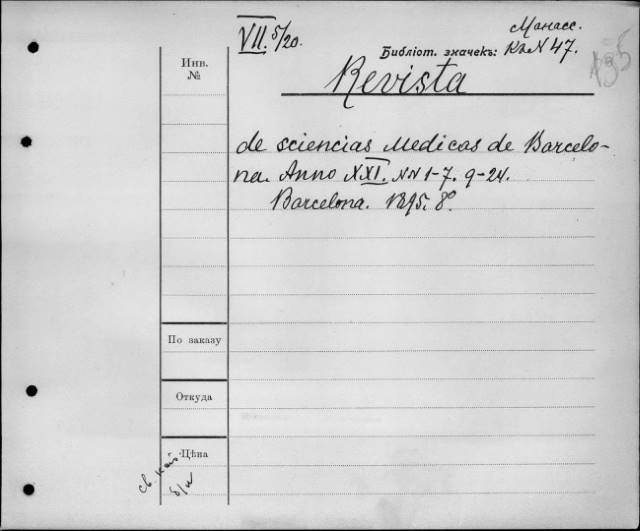 VII. 5/20.
Манасс.
Библіот. значекъ: Кв N 47.
Инв.
№
Revista
de sciencias Medicas de Barcelo-
na. Anno XXI. NN 1-7. 9-24.
Barcelona. 1895. 8°.
По заказу
Откуда
Цѣна
св. кат.
б/ц